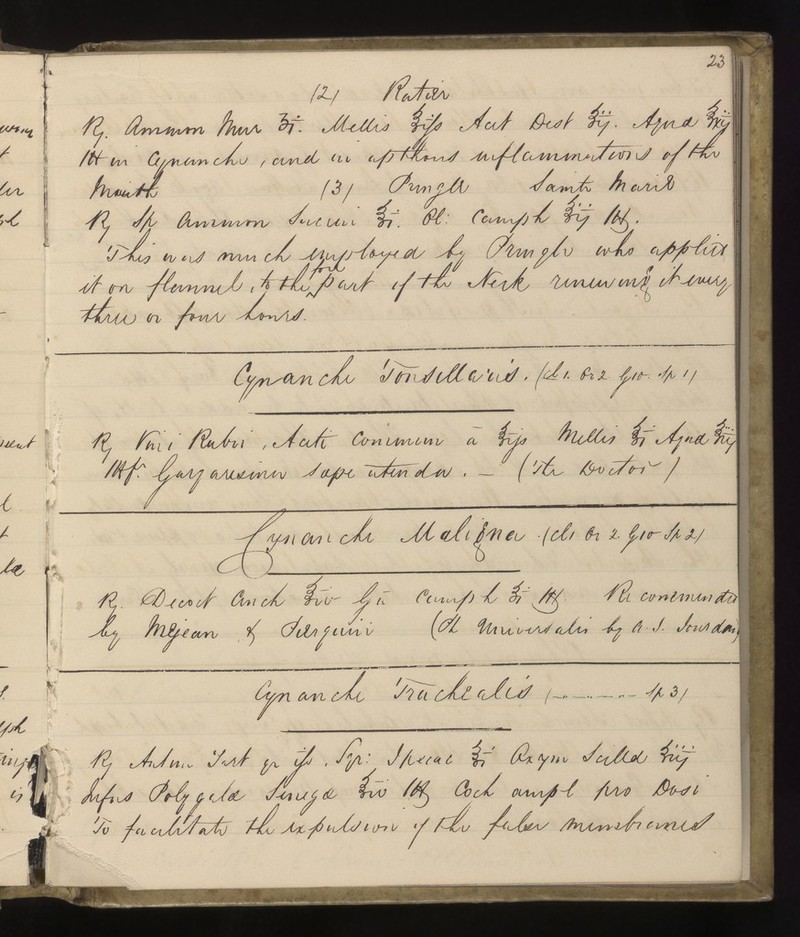 23
(2) Ratier
℞. Ammon Mur ʒi. Mellis ℥ifs Acet Dest ℥ij. Aqua ℥xij
M in Cynanche, and in apthous inflammations of the
Mouth (3) Pringle Samte Marie
℞ Sp Ammon Succini ℥i. Ol: Camph ℥ij M.
This was much employed by Pringle who applied
it on flannel, to the fore part of the Neck renewing it every
three or four hours.
Cynanche Tonsillaris. (cl 1. Or 2 G 10. Sp 1)
℞ Vini Rubri, Aceti Commun a ℥ifs Mellis ℥i Aqua
Mft. Gargarisma sæpe utenda. — (The Doctor)
Cynanche Maligna (cl 1 Or 2. G 10 Sp 2)
℞. Decoct Cinch ℥iv Gu Camph M. Recommended
by Mejean & (Ph Universalis by A. J. Jourdan)
Cynanche Trachealis (-------- Sp 3)
℞ Antim Tart gr ifs. Syr: Ipecac ℥i Oxym Scillæ ℥iij
Infus Polygalæ Senegæ ℥iv M Coch ampl pro Dosi
To facilitate the expulsion of the false membranes